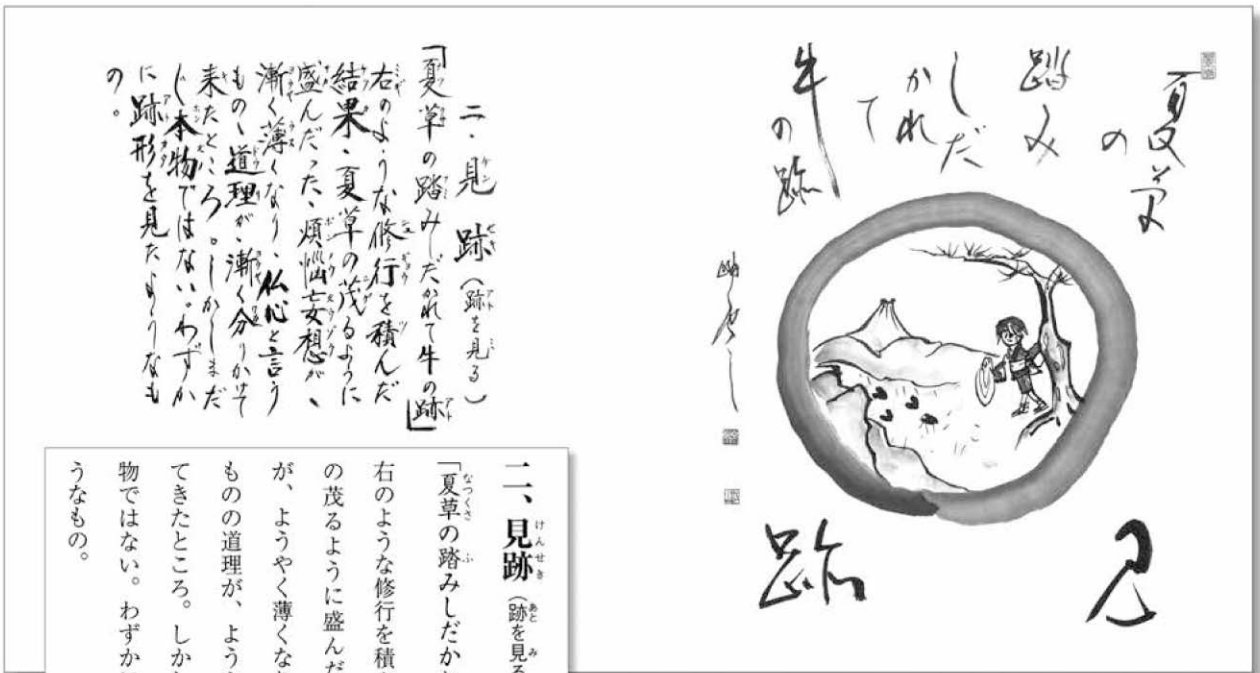 夏草
の
踏み
しだ
かれ
て
牛の跡
見跡
二.見跡(跡を見る)
ケンセキ アト ミ
「夏草の踏みしだかれて牛の跡」
右のような修行を積んだ
結果、夏草の茂るように
盛んだった、煩悩妄想が、
漸く薄くなり、仏心と言う
もの、道理が、漸く分りかけて
来たところ。しかしまだ
本物ではない。わずか
に跡形を見たようなも
の。
二、見跡(跡を見る
けんせき あと み
「夏草の踏みしだか
なつくさ ふ
右のような修行を積
の茂るように盛んだ
が、ようやく薄くな
ものの道理が、よう
てきたところ。しか
物ではない。わずか
うなもの。